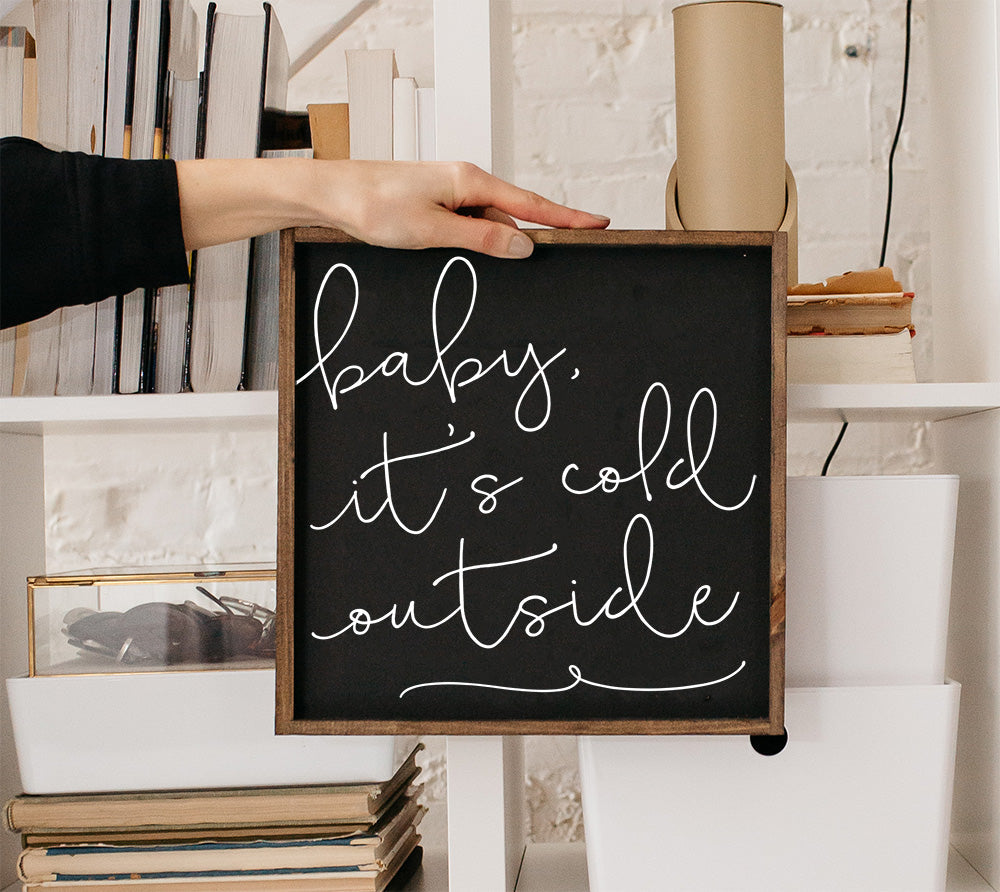 baby,
it's cold
outside